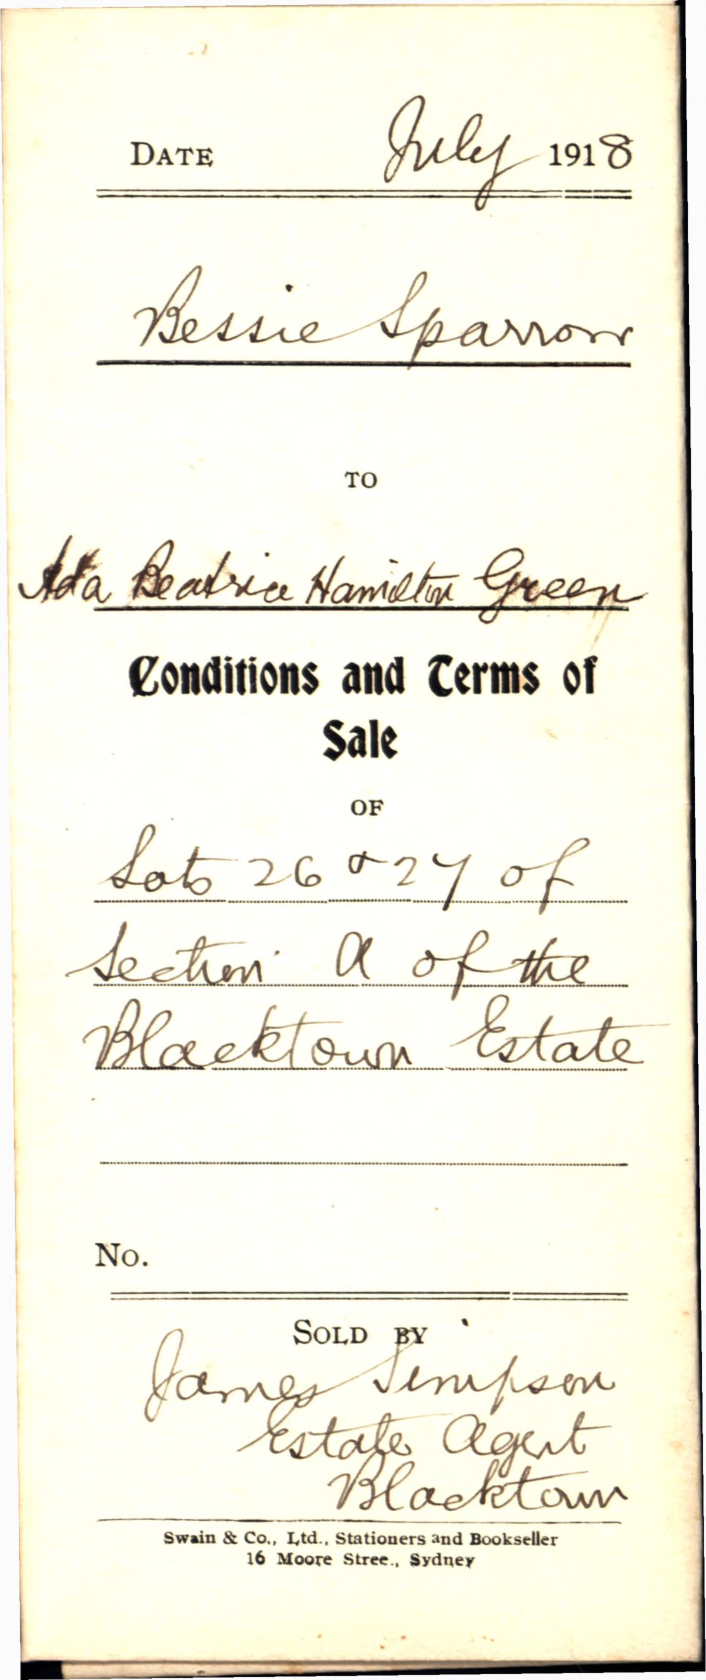 DATE July 1918
Bessie Sparrow
TO
Ada Beatrice Hamilton Green
Conditions and Terms of
Sale
OF
Lots 26 & 27 of
Section A of the
Blacktown Estate
No.
SOLD BY
James Simpson
Estate Agent
Blacktown
Swain & Co., Ltd., Stationers and Bookseller
16 Moore Stree., Sydney